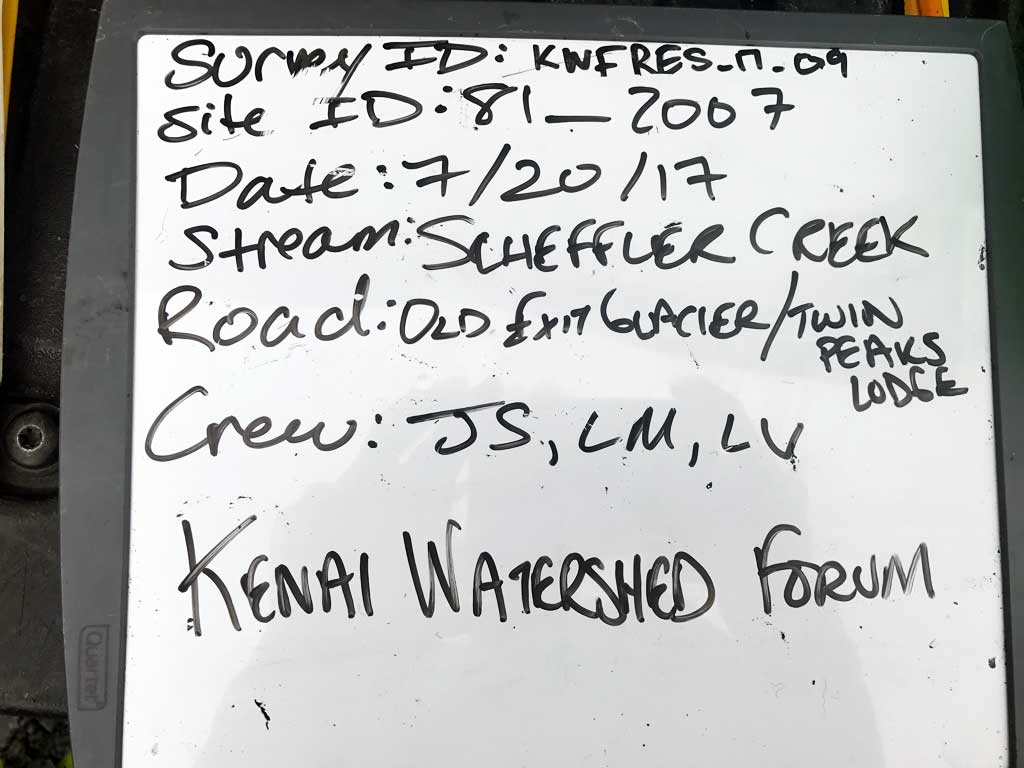 Survey ID: KWFRES_17_09
Site ID: 81_2007
Date: 7/20/17
Stream: SCHEFFLER CREEK
Road: OLD EXIT GLACIER/TWIN
PEAKS
LODGE
Crew: JS, LM, LV
KENAI WATERSHED FORUM
Quartet